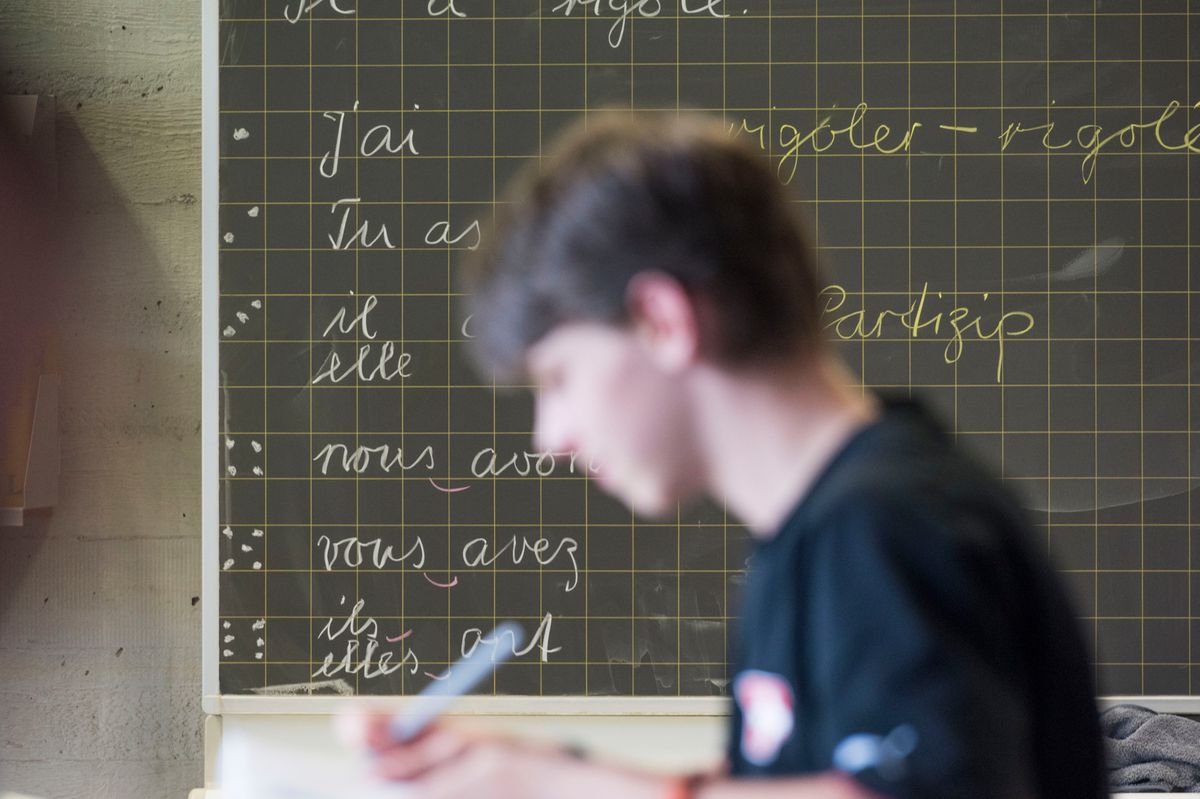 a rigolé.
J'ai rigoler – rigolé
Tu as
il Partizip
elle
nous avon
vous avez
ils ont
elles